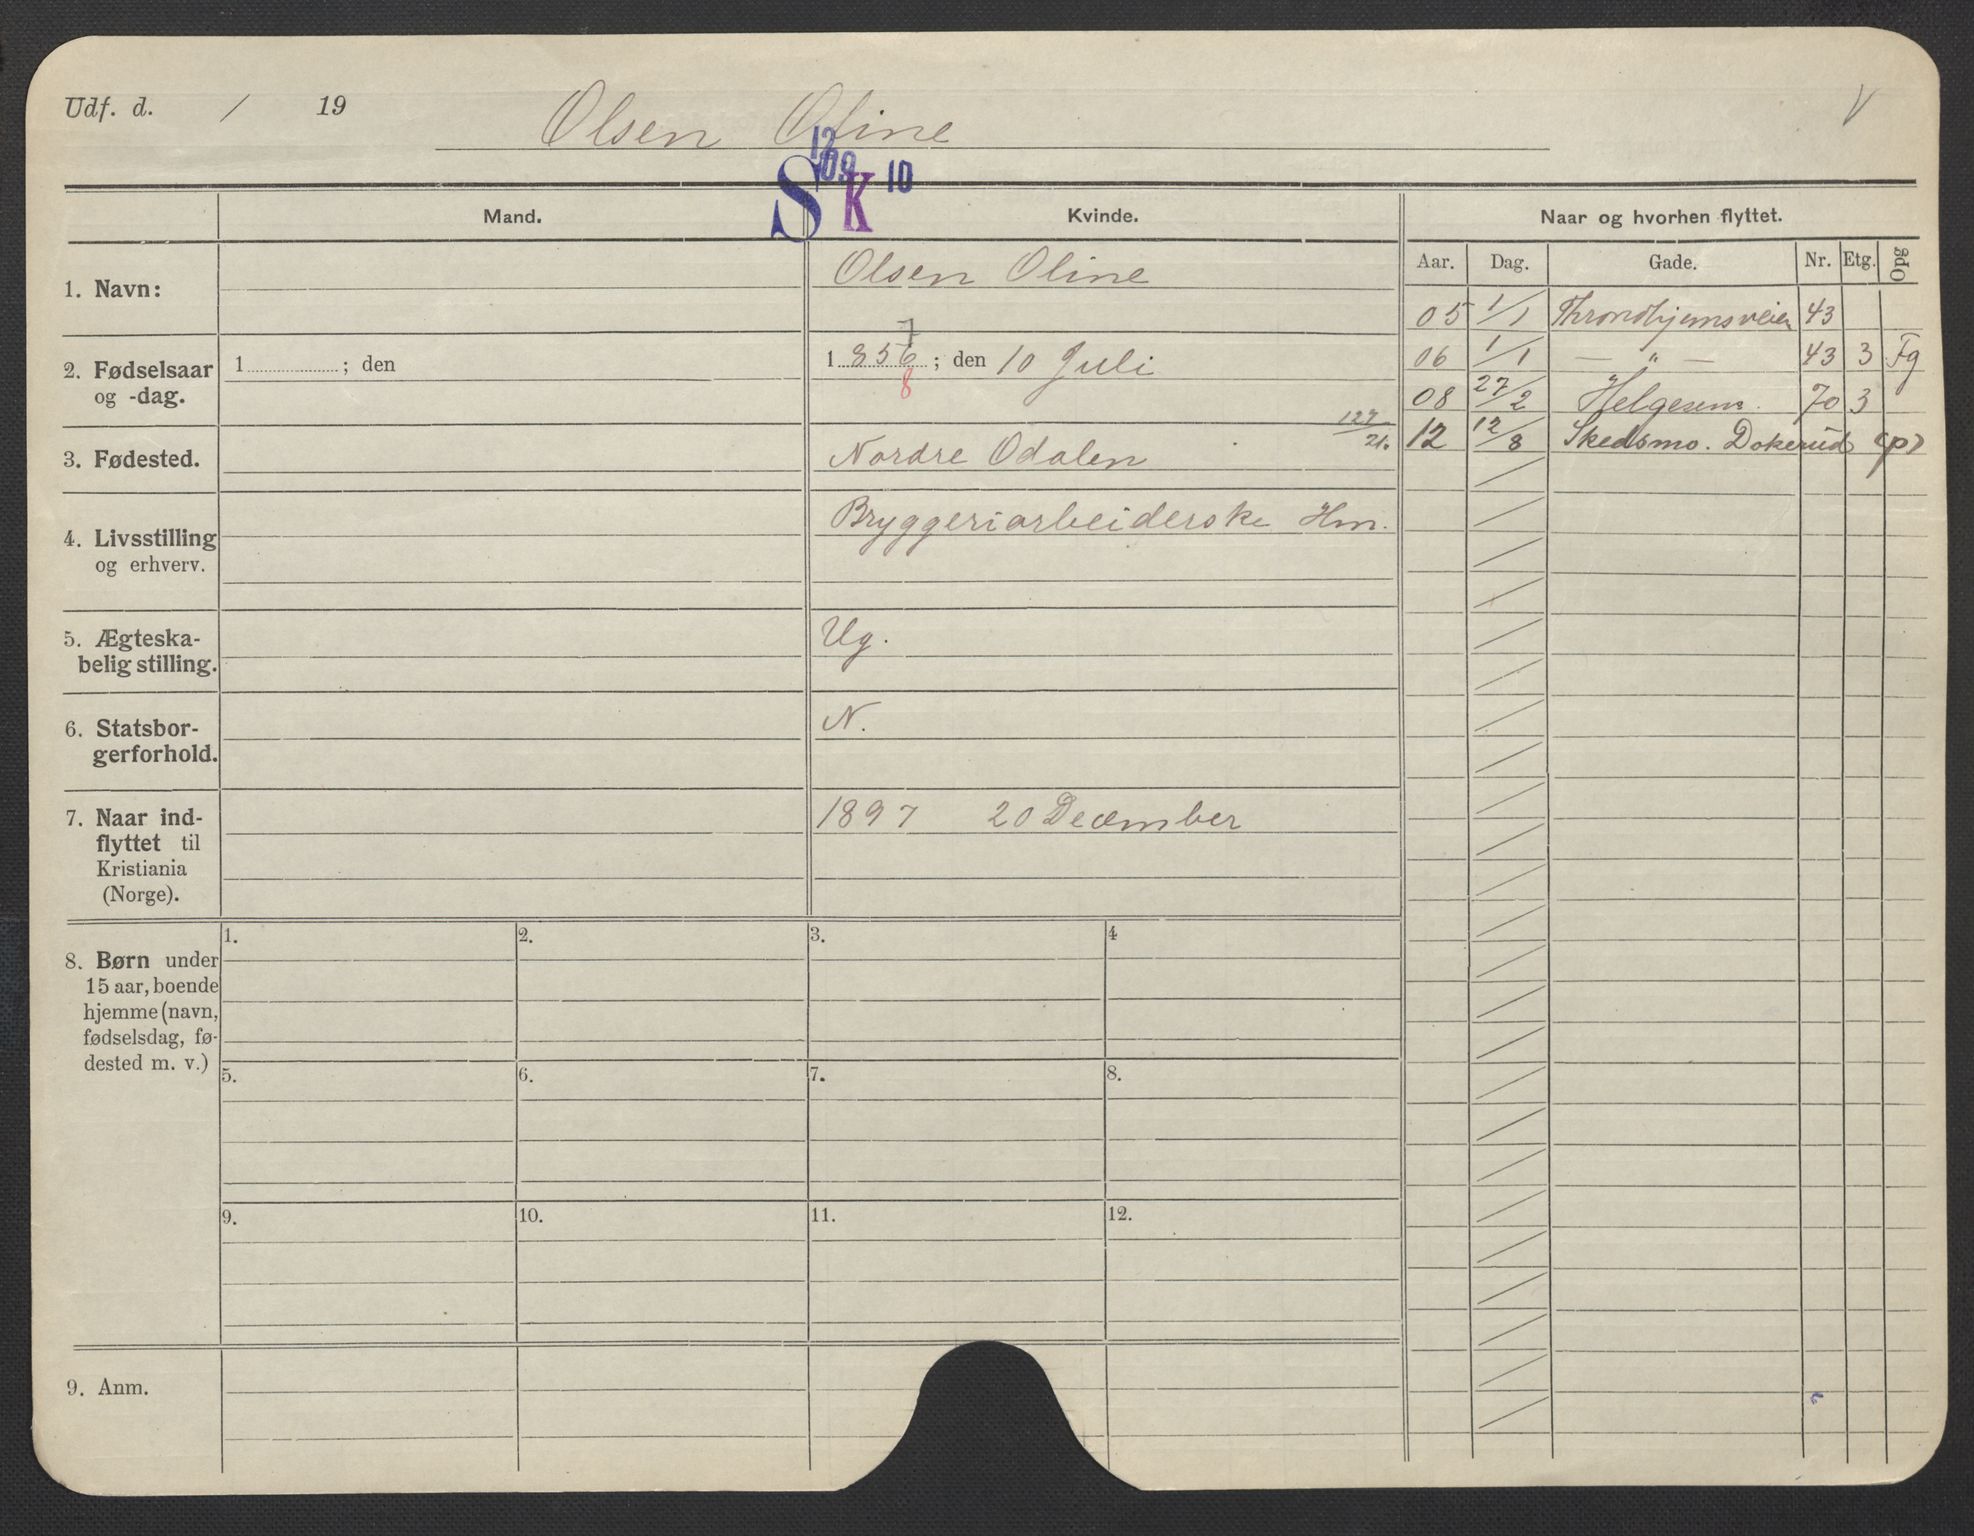 Udf. d. / 19 Olsen Oline V
12 09 10
S K
Mand. Kvinde. Naar og hvorhen flyttet.
Aar. Dag. Gade. Nr. Etg. Opg
1. Navn: Olsen Oline
05 1/1 Throndhjemsveien 43
7
2. Fødselsaar og -dag. 1 ; den 1 856 ; den 10 Juli
8
06 1/1 — " — 43 3 Fg
08 27/2 Helgesens. 70 3
127/21.
12 12/8 Skedsmo. Dokerud (p)
3. Fødested. Nordre Odalen
4. Livsstilling og erhverv. Bryggeriarbeiderske Hm.
5. Ægteska-
belig stilling. Ug.
6. Statsbor-
gerforhold. N.
7. Naar ind-
flyttet til
Kristiania
(Norge).
1897 20 December
8. Børn under
15 aar, boende
hjemme (navn,
fødselsdag, fø-
dested m. v.)
1. 2. 3. 4
5. 6. 7. 8.
9. 10. 11. 12.
9. Anm.